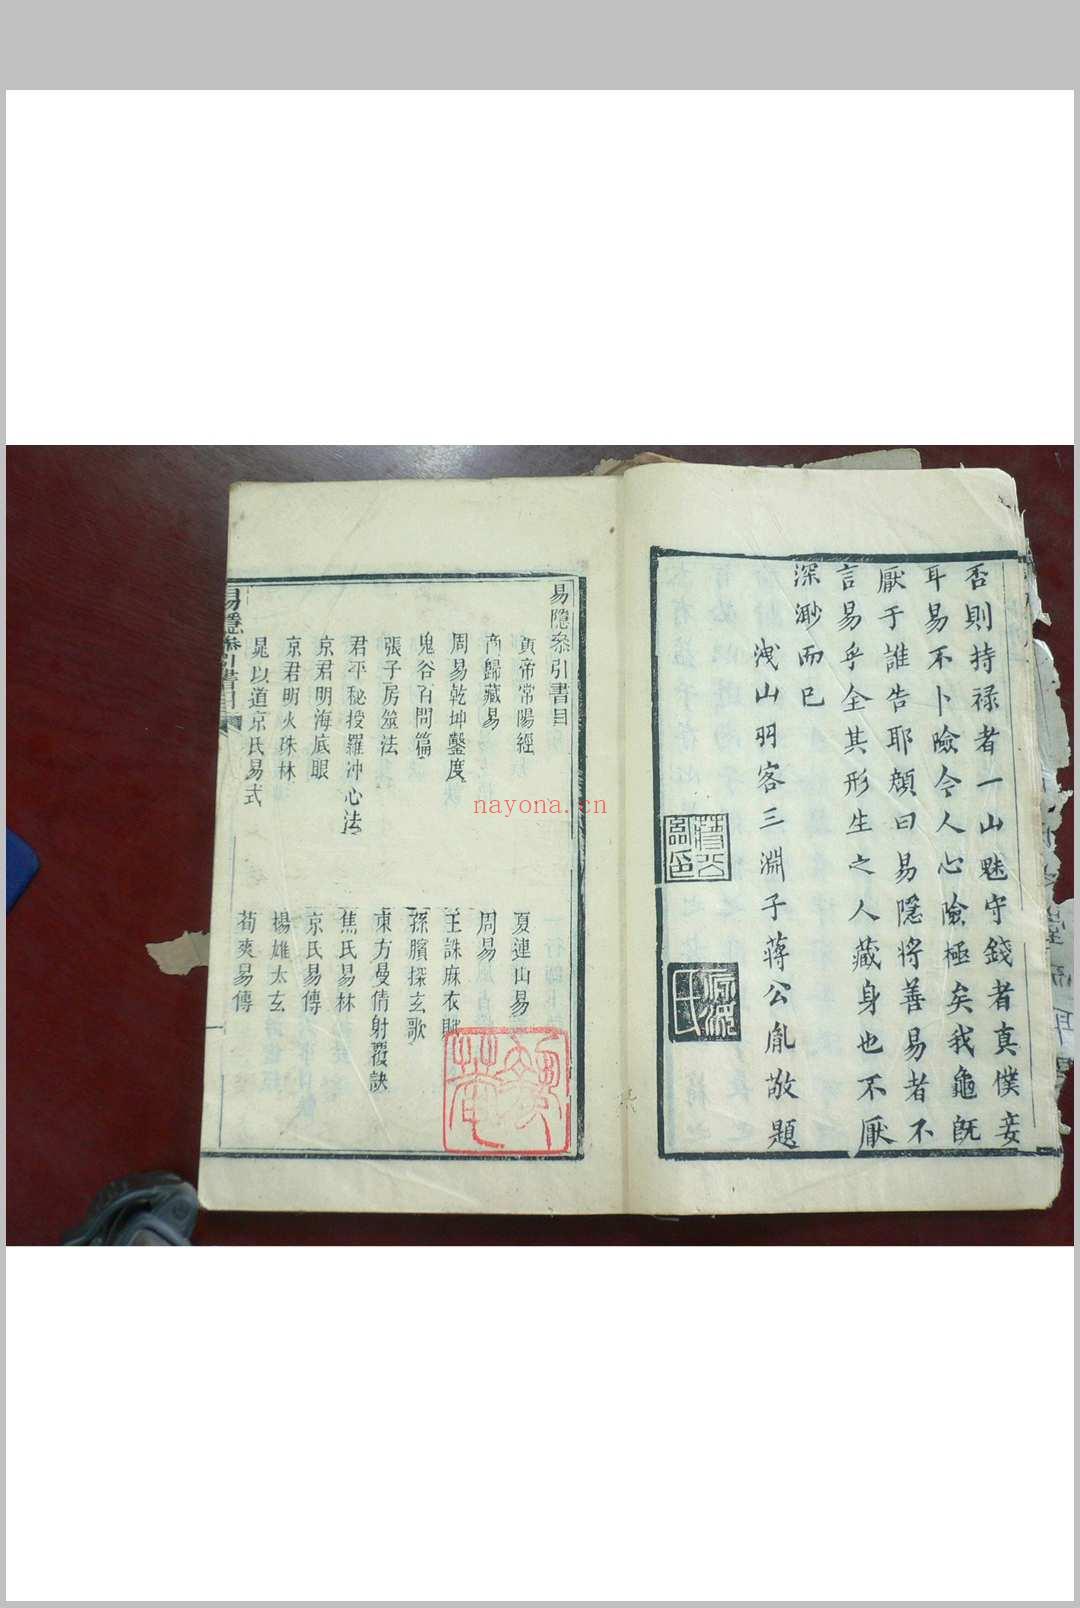 否則持禄者一山魅守錢者真僕妾
耳易不卜險令人心險極矣我龜旣
厭于誰告耶頠曰易隱將善易者不
言易乎全其形生之人藏身也不厭
深渺而已
洩山羽客三淵子蔣公胤敬題
易隱叅引書目
黃帝常陽經
夏連山易
商歸藏易
周易
周易乾坤鑿度
王詡麻衣賦
鬼谷百問篇
孫臏探玄歌
張子房筮法
東方曼倩射覆訣
君平秘授羅冲心法
焦氏易林
京君明海底眼
京氏易傳
京君明火珠林
楊雄太玄
晁以道京氏易式
荀爽易傳
易隱叅引書目
一
nayona.cn